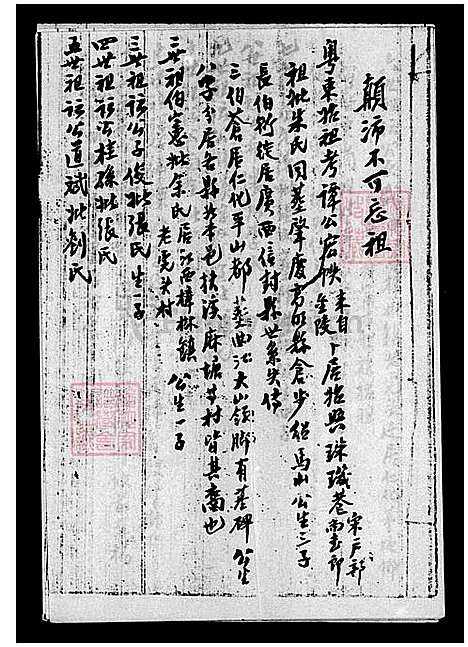 顛沛不可忘祖
粵東始祖考譚公宏帙 來自金陵 卜居始興珠璣巷 宋戶部尚書郎
祖妣朱氏同葬肇慶高明縣倉步 馬山公生三子
長伯 徙居廣西信封縣世系失傳
三伯蒼居仁化平山都葬曲江大山嶺腳有基碑 公生
八子分居各縣 本邑扶溪麻塘等村皆其裔也
二世祖伯憲妣余氏居江西樟樹鎮老虎井村 公生一子
三世祖諱公子俊妣張氏生一子
四世祖諱公桂孫妣張氏
五世祖諱公道斌妣劉氏